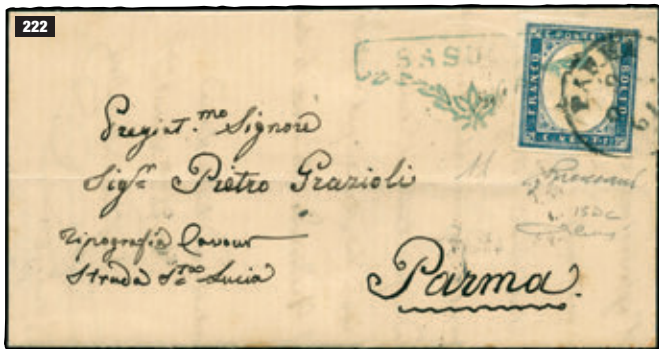 222
SASSU
FRANCO
BOLLO
Pregiat.mo Signore
Sigr Pietro Grazioli
11
Tipografia Cavour
Strada Sta Lucia
15DC
Parma